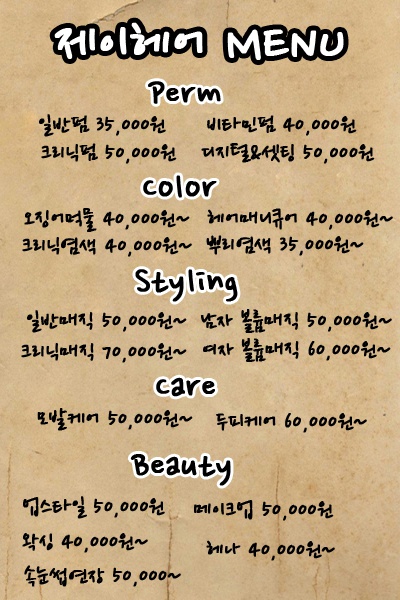 제이헤어 MENU
Perm
일반펌 35,000원 비타민펌 40,000원
크리닉펌 50,000원 디지털&셋팅 50,000원
color
오징어먹물 40,000원~ 헤어매니큐어 40,000원~
크리닉염색 40,000원~ 뿌리염색 35,000원~
Styling
일반매직 50,000원~ 남자 볼륨매직 50,000원~
크리닉매직 70,000원~ 여자 볼륨매직 60,000원~
care
모발케어 50,000원~ 두피케어 60,000원~
Beauty
업스타일 50,000원 메이크업 50,000원
왁싱 40,000원~ 헤나 40,000원~
속눈썹연장 50,000~